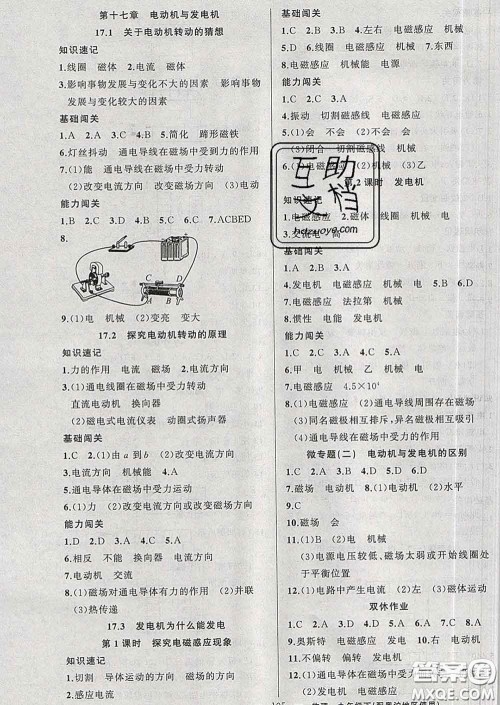 第十七章　电动机与发电机
17.1　关于电动机转动的猜想
知识速记
1.线圈　磁体　2.电流　磁体
3.影响事物发展与变化不大的因素　影响事物
发展与变化较大的因素
基础闯关
1.A　2.A　3.C　4.B　5.简化　蹄形磁铁
6.灯丝抖动　通电导线在磁场中受到力的作用
7.(1)通电导线在磁场中受力
(2)改变电流方向　(3)改变磁场方向　(4)电动
能力闯关
1.B　2.C　3.D　4.C　5.B　6.A　7.ACBED
8.
A　C　D　B
9.(1)电　机械　(2)变亮　变大
17.2　探究电动机转动的原理
知识速记
1.力的作用　电流　磁场　2.电流方向
3.(1)通电线圈在磁场中受力转动
直流电动机　换向器
(2)磁电式电流仪表　动圈式扬声器
基础闯关
1.C　2.(1)由a到b　(2)改变电流方向
3.电流方向　机械能　4.D
5.通电导体在磁场中受力运动
6.(1)力　(2)改变电流方向或改变磁场方向
能力闯关
1.D　2.A　3.D　4.C　5.A
6.相反　不能　换向器　电流方向
7.电动机　交流
8.(1)磁场对通电导体有力的作用　(2)并联
(3)热传递
17.3　发电机为什么能发电
第1课时　探究电磁感应现象
知识速记
1.切割　导体运动　磁场的方向
2.感应电流
基础闯关
1.B　2.B　3.C　4.左右　电磁感应
5.D　6.电磁感应　
8.电磁感应　机械能　电源
能力闯关
1.C　2.A　3.C
4.振动　切割磁感线　电磁感应
5.(1)会　不会
(3)闭合　切割磁感线
6.(1)电磁感应　(2)机械　(3)乙
第2课时　发电机
知识速记
1.电磁感应　2.磁体　线圈　机械　电
3.交流电　
互助文档
hdzuoye.com
基础闯关
1.D　2.B　3.A
4.发电机　电磁感应　机械　电　5.D　6.D
7.电磁感应　法拉第　机械
8.惯性　电能　发电机
能力闯关
1.C　2.B　3.A　4.C　5.D
6.甲　电　机械　乙　机械　电
7.电磁感应　4.5×10⁴
8.(1)电磁感应　(2)通电导线周围存在磁场
(3)同名磁极相互排斥，异名磁极相互吸引
(4)通电导线在磁场中受力的作用
微专题(二)　电动机与发电机的区别
1.A　2.C　3.B　4.D　5.D　6.D
7.磁场　电动机　8.(1)电动机　(2)水平
9.(1)电磁感应　发电机
10.C
11.磁场　会
12.(1)B　(2)电　机械
(3)电源电压较低、磁场太弱或开始线圈处
于平衡位置
13.(1)电路中产生电流　(2)磁体运动
双休作业
1.C　
9.奥斯特　电磁感应　
11.不偏转　偏转　发电机
12.电磁感应　电　机械
答案圈
MXQE.COM